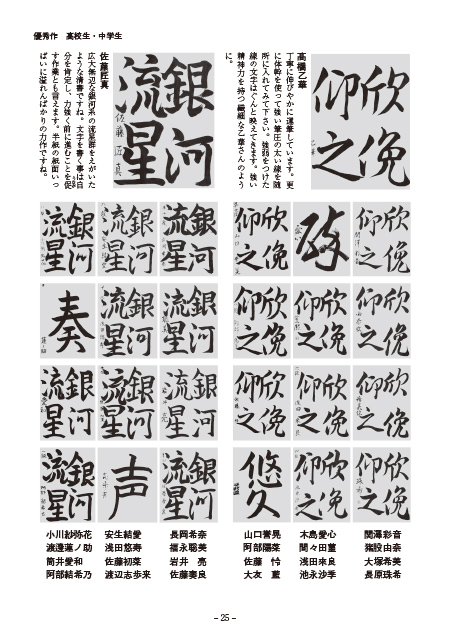 優秀作 高校生・中学生
欣俛
仰之
髙橋乙華
丁寧に伸びやかに運筆しています。更
に体幹を使って強い筆圧の太い線を随
所に入れてみて下さい。強弱をつけた
線の文字はぐんと映えてきます。強い
精神力を持つ繊細な乙華さんのよう
に。
銀河
流星
佐藤匠真
佐藤匠真
広大無辺な銀河系の流星群をえがいた
ような清書ですね。文字を書く事は自
分を肯定し、力強く前に進むことを促
す作業とも言えます。半紙の紙面いっ
ぱいに溢れんばかりの力作ですね。
欣俛
仰之
欣俛
仰之
銀河
流星
銀河
流星
銀河
流星
欣俛
仰之
欣俛
仰之
欣俛
仰之
銀河
流星
銀河
流星
奏
欣俛
仰之
欣俛
仰之
欣俛
仰之
銀河
流星
銀河
流星
銀河
流星
欣俛
仰之
欣俛
仰之
悠久
銀河
流星
声
銀河
流星
関澤彩音
猪股由奈
大塚希美
長原珠希
木島愛心
間々田菫
浅田來良
池永沙季
山口誉晃
阿部陽菜
佐藤 怜
大友 藍
長岡希奈
福永聡美
岩井 亮
佐藤妻良
安生結愛
浅田悠寿
佐藤初菜
渡辺志歩来
小川紗弥花
渡邉蓮ノ助
筒井愛和
阿部結希乃
– 25 –